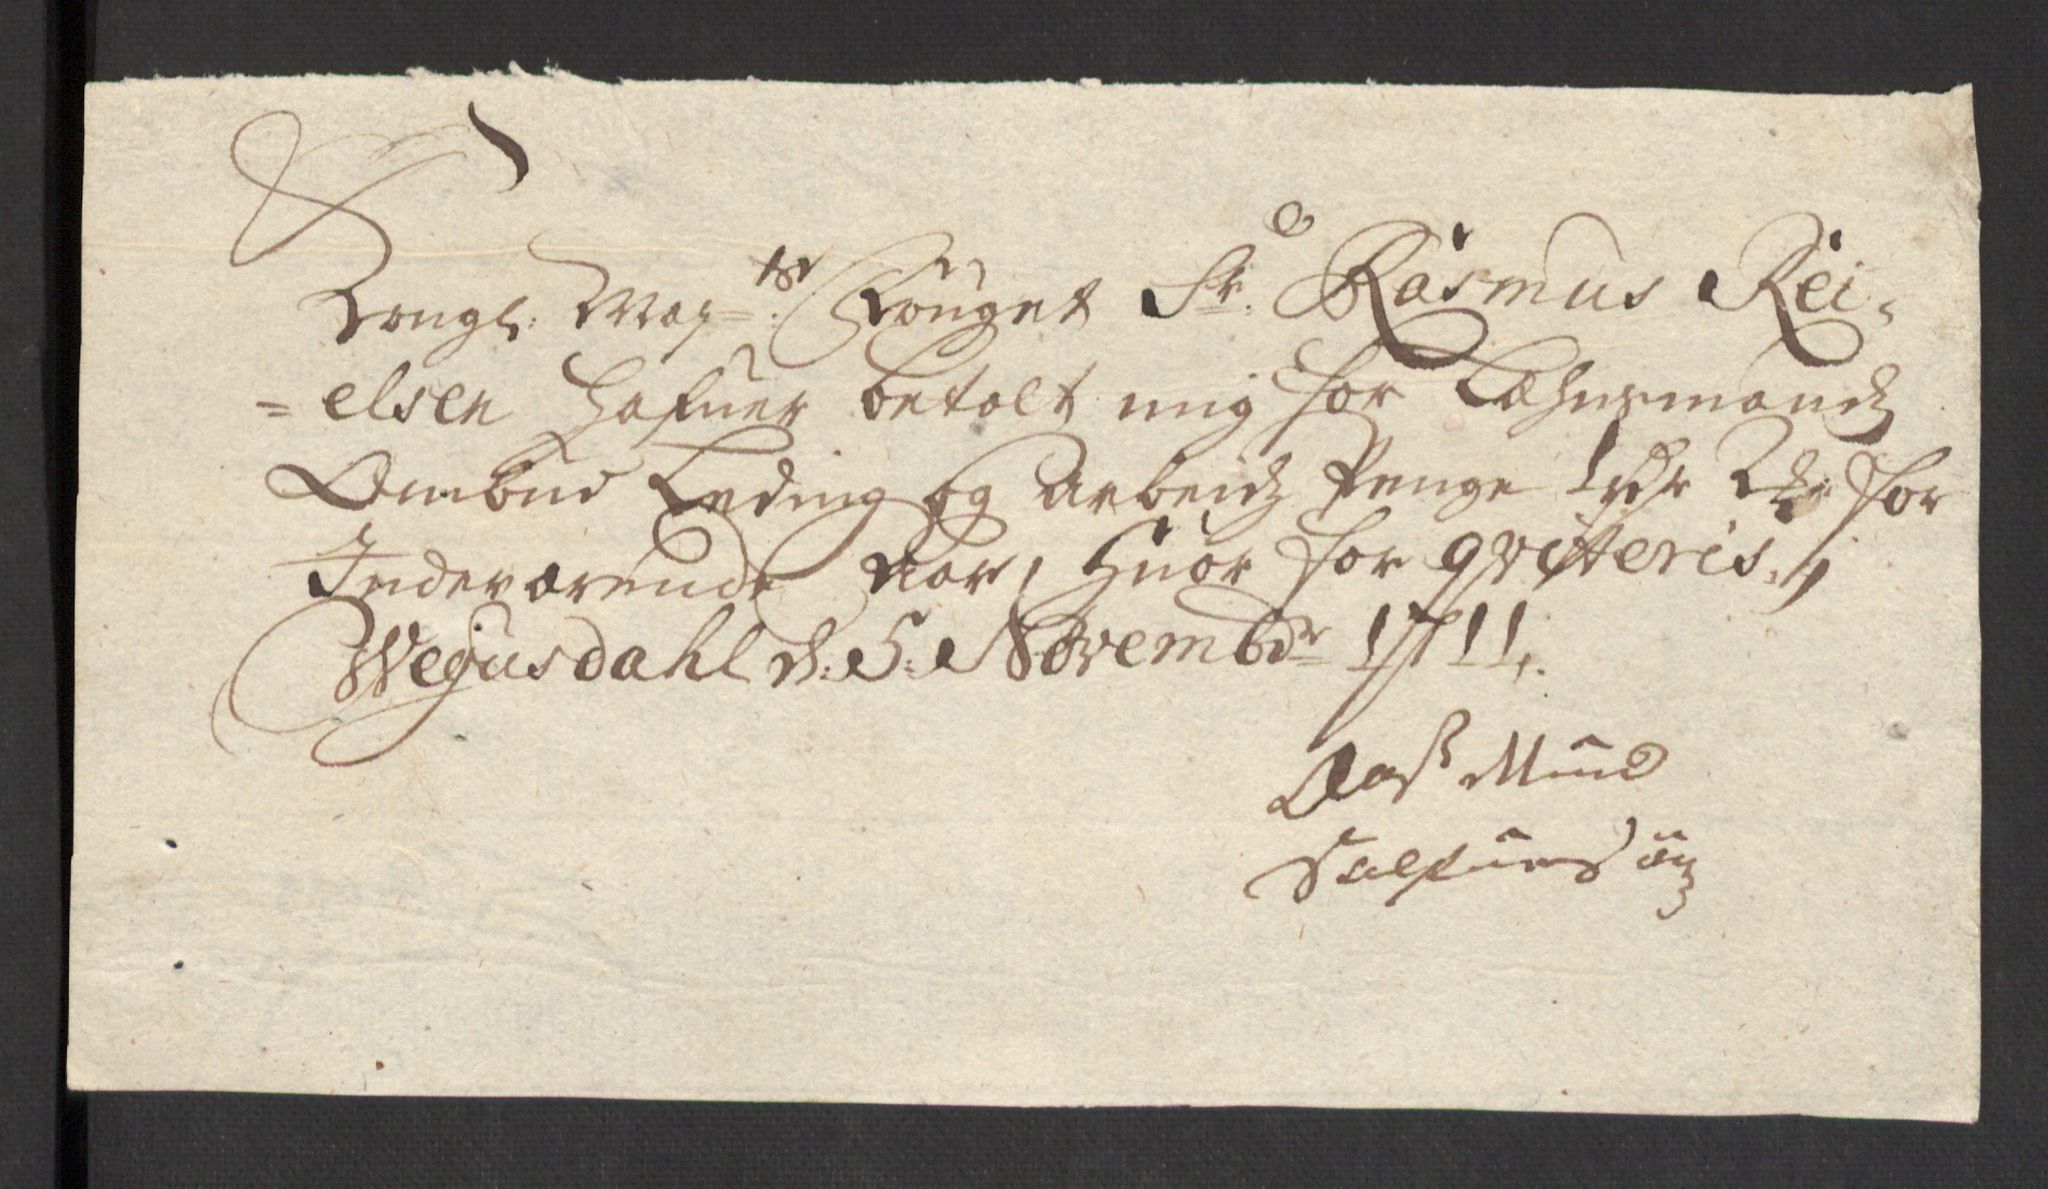 Kongl: May:ts Fouget Sr. Rasmus Rei-
=elsen hafuer betalt mig for Læhnsmands
Ombud Leding og Arbeids Penge 1 rdr 2 for
Indeværende Aar, huor for qviteris,
Wegusdahl d: 5: Novembr 1711.
Aas Mund
SalfuesSøn